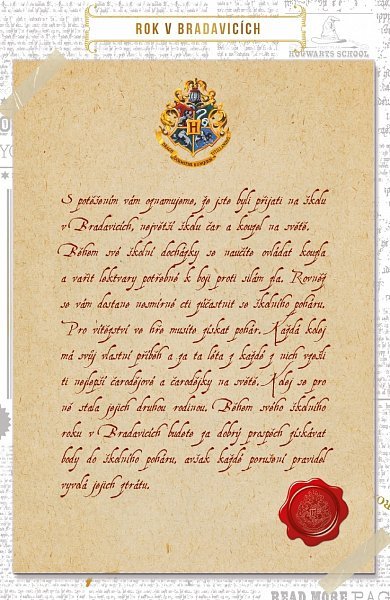 ROK V BRADAVICÍCH
HOGWARTS SCHOOL
S potěšením vám oznamujeme, že jste byli přijati na školu
v Bradavicích, největší školu čar a kouzel na světě.
Během své školní docházky se naučíte ovládat kouzla
a vařit lektvary potřebné k boji proti silám zla. Rovněž
se vám dostane nesmírné cti zúčastnit se školního poháru.
Pro vítězství ve hře musíte získat pohár. Každá kolej
má svůj vlastní příběh a za ta léta z každé z nich vzešli
ti nejlepší čarodějové a čarodějky na světě. Kolej se pro
ně stala jejich druhou rodinou. Během svého školního
roku v Bradavicích budete za dobrý prospěch získávat
body do školního poháru, avšak každé porušení pravidel
vyvolá jejich ztrátu.
READ MORE PAG